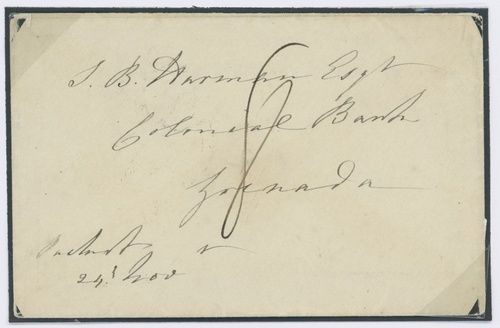 S. B. Harman Esqr
Colonial Bank
Grenada
8
Packet
24 Nov